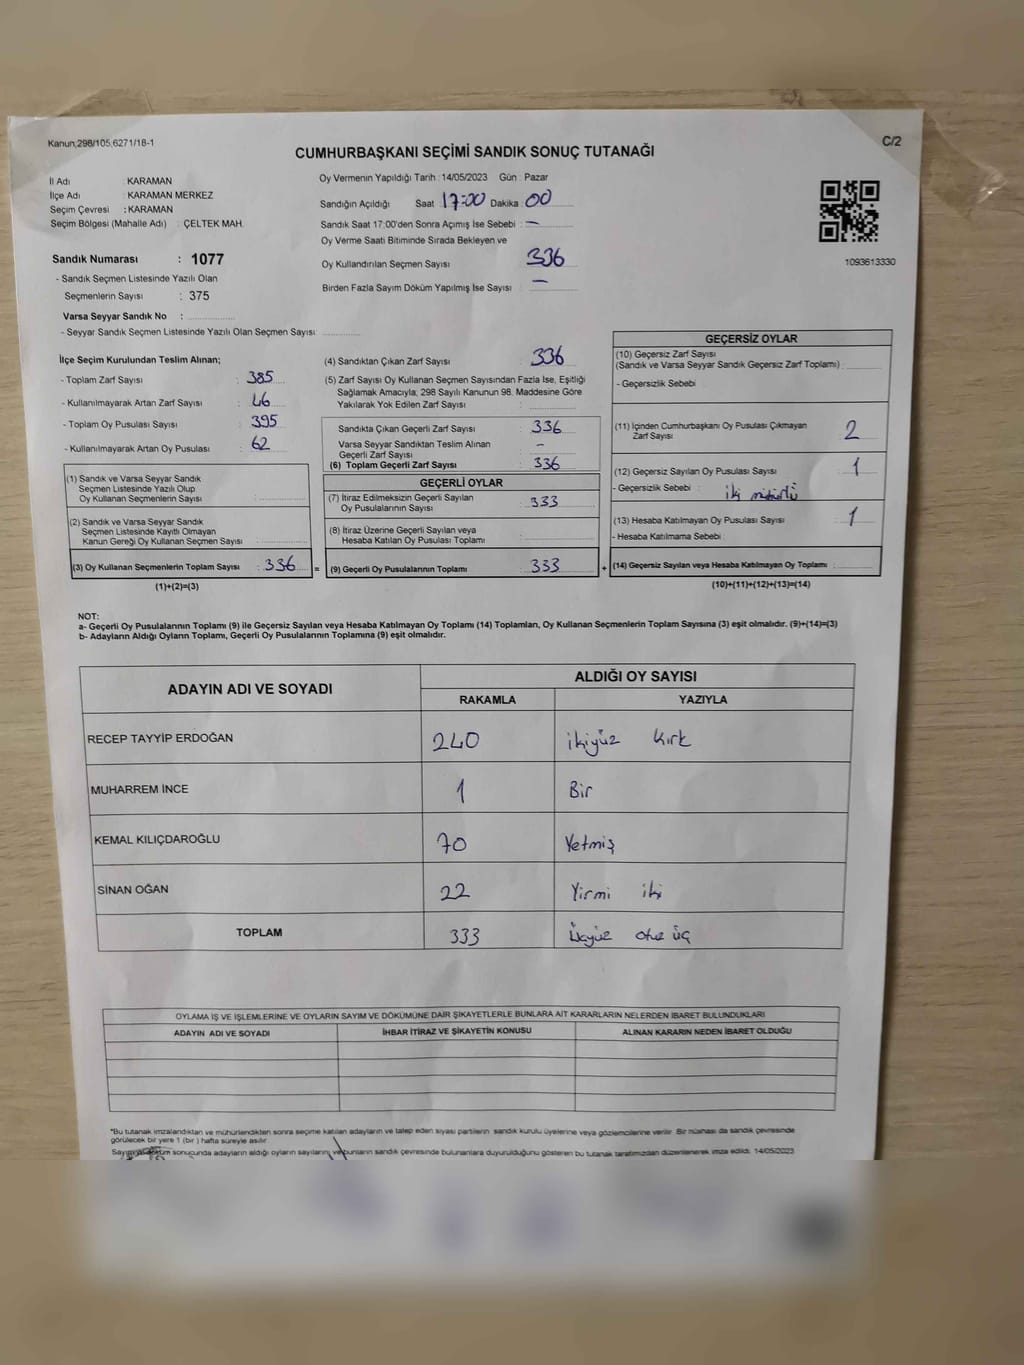 Kanun;298/105;6271/18-1
C/2
CUMHURBAŞKANI SEÇİMİ SANDIK SONUÇ TUTANAĞI
İl Adı : KARAMAN
İlçe Adı : KARAMAN MERKEZ
Seçim Çevresi : KARAMAN
Seçim Bölgesi (Mahalle Adı) : ÇELTEK MAH.
Sandık Numarası : 1077
- Sandık Seçmen Listesinde Yazılı Olan
Seçmenlerin Sayısı : 375
Varsa Seyyar Sandık No :
- Seyyar Sandık Seçmen Listesinde Yazılı Olan Seçmen Sayısı:
Oy Vermenin Yapıldığı Tarih : 14/05/2023 Gün : Pazar
Sandığın Açıldığı Saat : 17:00 Dakika : 00
Sandık Saat 17:00'den Sonra Açımış İse Sebebi : -
Oy Verme Saati Bitiminde Sırada Bekleyen ve
Oy Kullandırılan Seçmen Sayısı : 336
Birden Fazla Sayım Döküm Yapılmış İse Sayısı : -
1093613330
İlçe Seçim Kurulundan Teslim Alınan;
- Toplam Zarf Sayısı : 385
- Kullanılmayarak Artan Zarf Sayısı : 46
- Toplam Oy Pusulası Sayısı : 395
- Kullanılmayarak Artan Oy Pusulası : 62
(1) Sandık ve Varsa Seyyar Sandık
Seçmen Listesinde Yazılı Olup
Oy Kullanan Seçmenlerin Sayısı :
(2) Sandık ve Varsa Seyyar Sandık
Seçmen Listesinde Kayıtlı Olmayan
Kanun Gereği Oy Kullanan Seçmen Sayısı :
(3) Oy Kullanan Seçmenlerin Toplam Sayısı : 336 =
(1)+(2)=(3)
(4) Sandıktan Çıkan Zarf Sayısı : 336
(5) Zarf Sayısı Oy Kullanan Seçmen Sayısından Fazla İse, Eşitliği
Sağlamak Amacıyla; 298 Sayılı Kanunun 98. Maddesine Göre
Yakılarak Yok Edilen Zarf Sayısı :
Sandıkta Çıkan Geçerli Zarf Sayısı : 336
Varsa Seyyar Sandıktan Teslim Alınan
Geçerli Zarf Sayısı : -
(6) Toplam Geçerli Zarf Sayısı : 336
GEÇERLİ OYLAR
(7) İtiraz Edilmeksizin Geçerli Sayılan
Oy Pusulalarının Sayısı : 333
(8) İtiraz Üzerine Geçerli Sayılan veya
Hesaba Katılan Oy Pusulası Toplamı :
(9) Geçerli Oy Pusulalarının Toplamı : 333 +
GEÇERSİZ OYLAR
(10) Geçersiz Zarf Sayısı
(Sandık ve Varsa Seyyar Sandık Geçersiz Zarf Toplamı) :
- Geçersizlik Sebebi
(11) İçinden Cumhurbaşkanı Oy Pusulası Çıkmayan
Zarf Sayısı : 2
(12) Geçersiz Sayılan Oy Pusulası Sayısı : 1
- Geçersizlik Sebebi : iki mühürlü
(13) Hesaba Katılmayan Oy Pusulası Sayısı : 1
- Hesaba Katılmama Sebebi :
(14) Geçersiz Sayılan veya Hesaba Katılmayan Oy Toplamı :
(10)+(11)+(12)+(13)=(14)
NOT:
a- Geçerli Oy Pusulalarının Toplamı (9) ile Geçersiz Sayılan veya Hesaba Katılmayan Oy Toplamı (14) Toplamları, Oy Kullanan Seçmenlerin Toplam Sayısına (3) eşit olmalıdır. (9)+(14)=(3)
b- Adayların Aldığı Oyların Toplamı, Geçerli Oy Pusulalarının Toplamına (9) eşit olmalıdır.
ADAYIN ADI VE SOYADI
ALDIĞI OY SAYISI
RAKAMLA YAZIYLA
RECEP TAYYİP ERDOĞAN 240 ikiyüz kırk
MUHARREM İNCE 1 Bir
KEMAL KILIÇDAROĞLU 70 Yetmiş
SİNAN OĞAN 22 Yirmi iki
TOPLAM 333 Üçyüz otuz üç
OYLAMA İŞ VE İŞLEMLERİNE VE OYLARIN SAYIM VE DÖKÜMÜNE DAİR ŞİKAYETLERLE BUNLARA AİT KARARLARIN NELERDEN İBARET BULUNDUKLARI
ADAYIN ADI VE SOYADI İHBAR İTİRAZ VE ŞİKAYETİN KONUSU ALINAN KARARIN NEDEN İBARET OLDUĞU
*Bu tutanak imzalandıktan ve mühürlendikten sonra seçime katılan adayların ve talep eden siyasi partilerin sandık kurulu üyelerine veya gözlemcilerine verilir. Bir nüshası da sandık çevresinde
görülecek bir yere 1 (bir ) hafta süreyle asılır.
sonucunda adayların aldığı oyların sayılarını ve bunların sandık çevresinde bulunanlara duyurulduğunu gösteren bu tutanak tarafımızdan düzenlenerek imza edildi. 14/05/2023